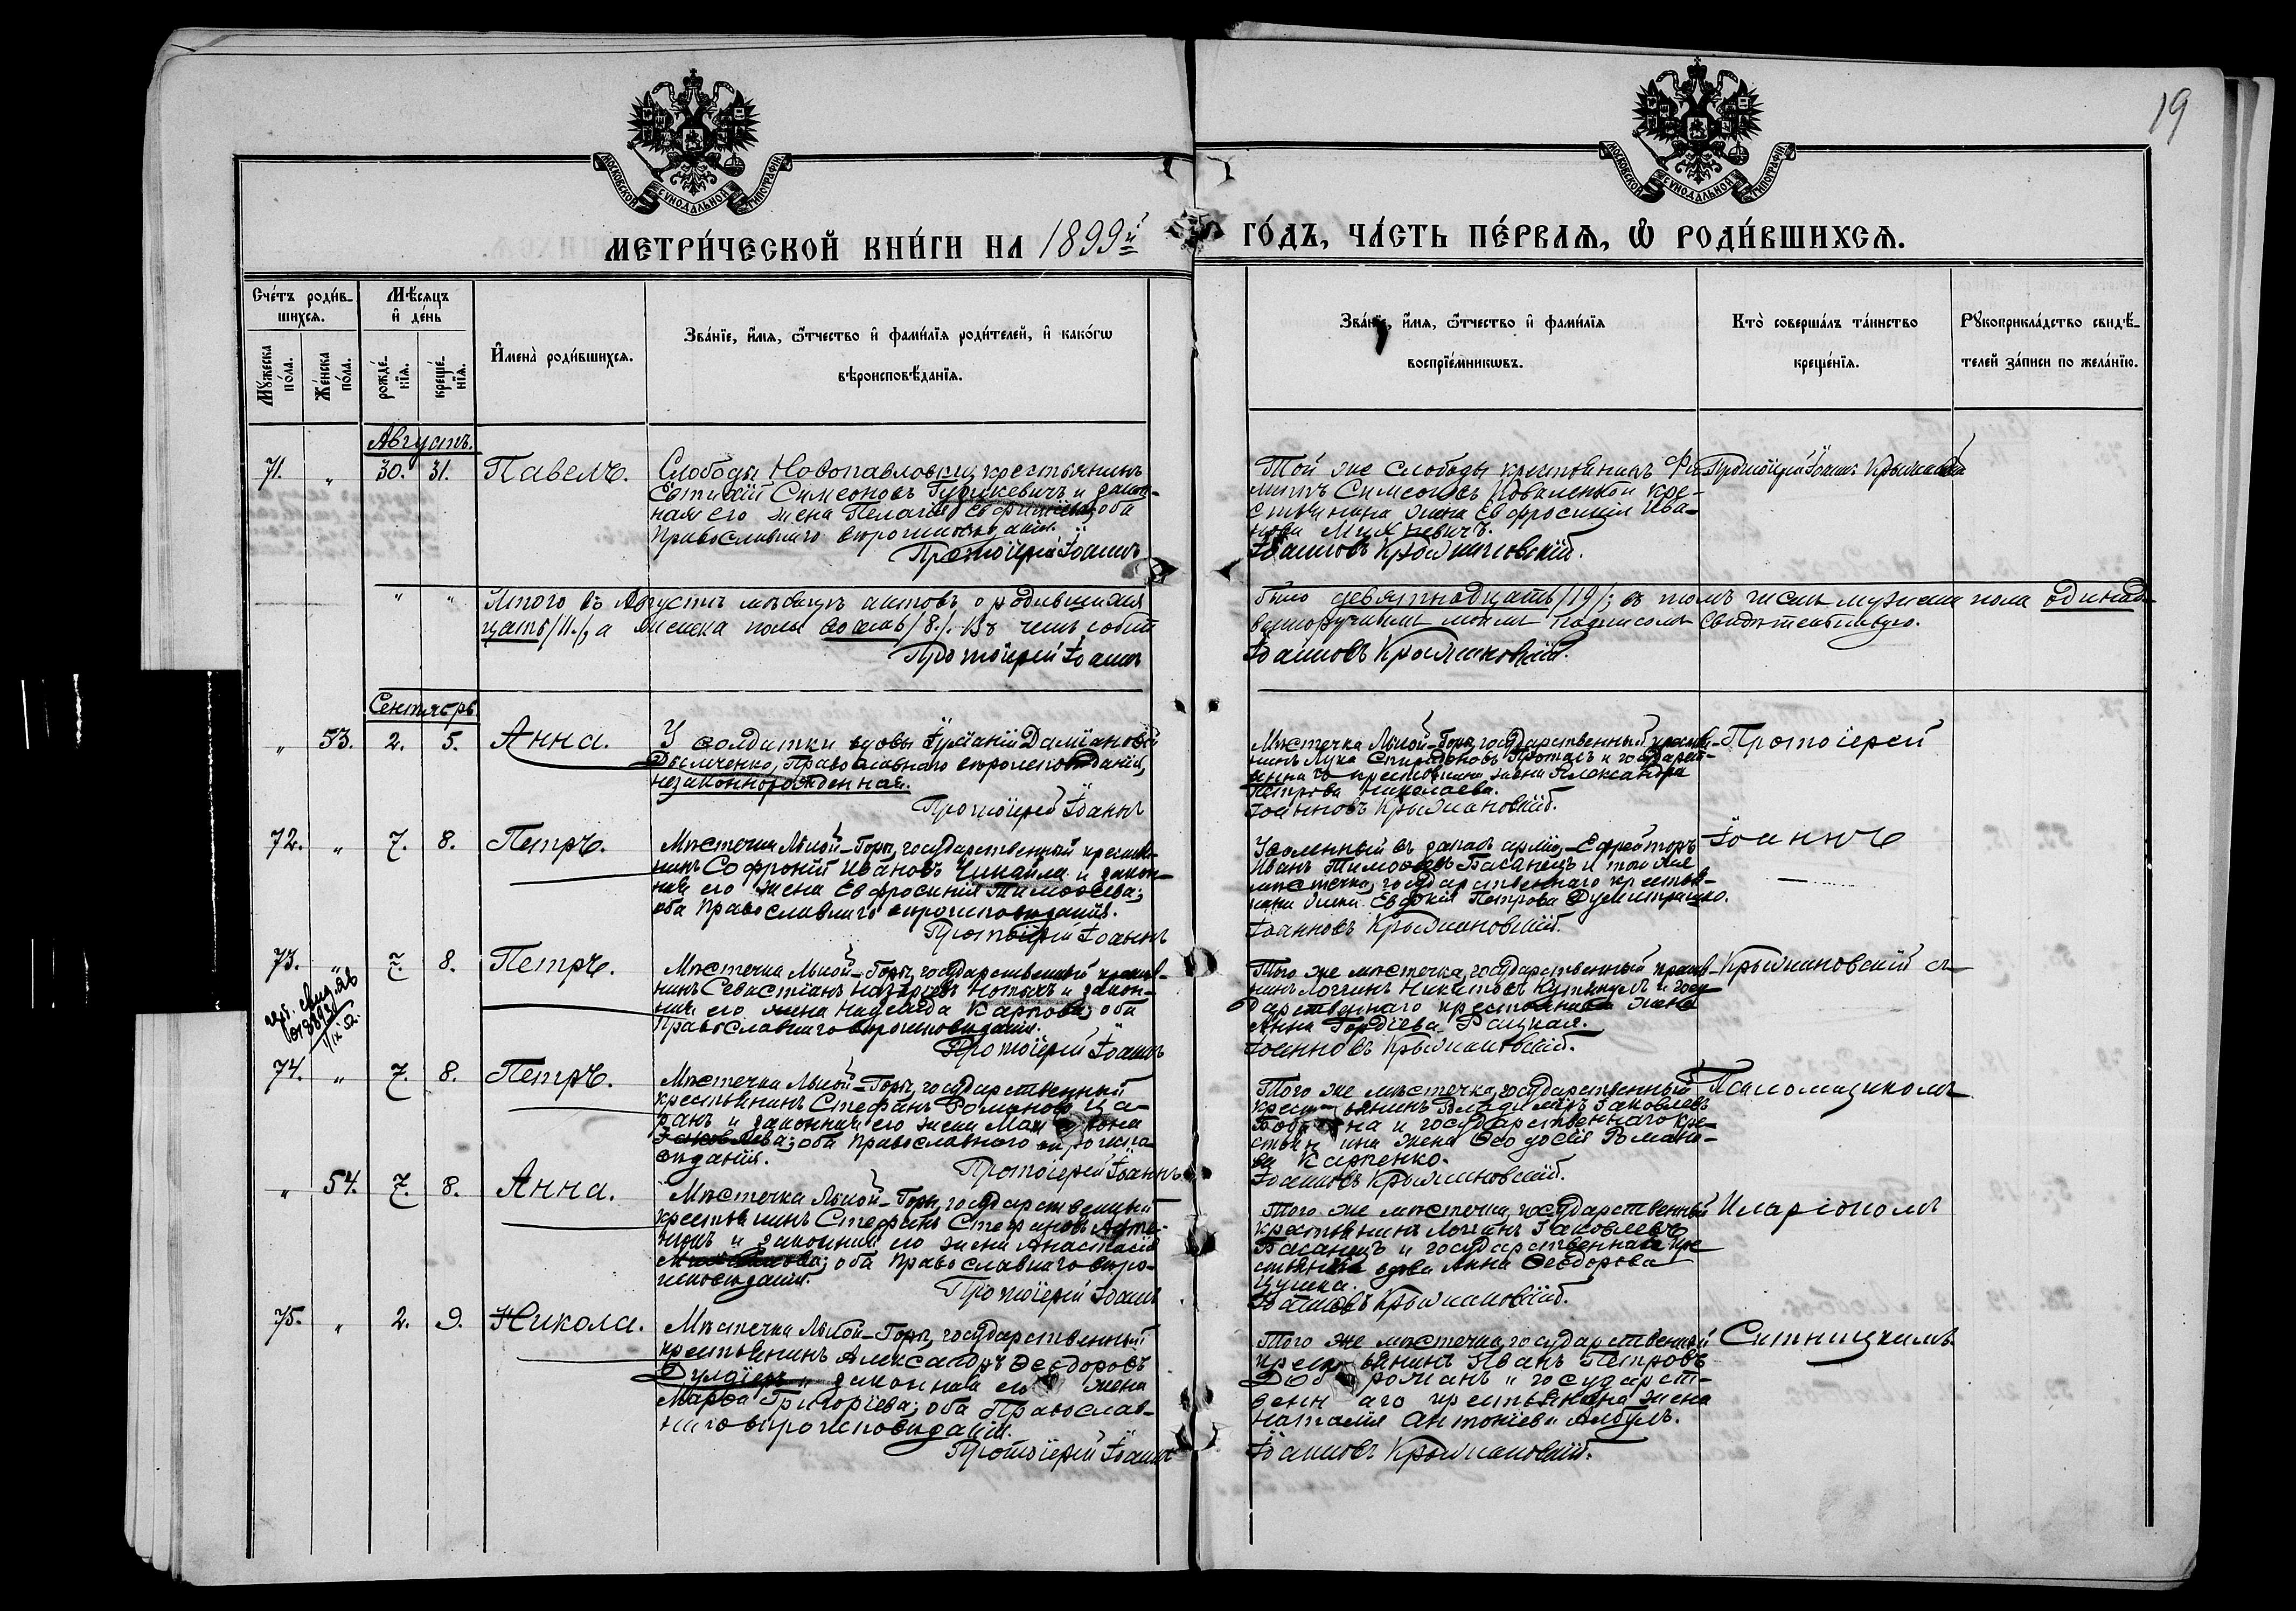 19
МОСКОВСКОЙ СѴНОДАЛЬНОЙ ТИПОГРАФІИ
МОСКОВСКОЙ СѴНОДАЛЬНОЙ ТИПОГРАФІИ
МЕТРИ́ЧЕСКОЙ КНИ́ГИ НА 1899й ГО́ДЪ, ЧА́СТЬ ПЕ́РВАѦ, Ѡ РОДИ́ВШИХСѦ.
Сче́тъ роди́в-
шихсѧ.
Мꙋ́жеска по́ла.
Же́нска по́ла.
Мѣ́сѧцъ
и҆ де́нь
рожде́-
нїѧ.
креще́-
нїѧ.
И҆мена̀ роди́вшихсѧ.
Зва́нїе, и҆́мѧ, ѻ҆́тчество и҆ фами́лїѧ роди́телей, и҆ како́гѡ
вѣроисповѣ́данїѧ.
Зва́нїе, и҆́мѧ, ѻ҆́тчество и҆ фами́лїѧ
воспрїе́мникѡвъ.
Кто̀ соверша́лъ та́инство
креще́нїѧ.
Рꙋкоприкла́дство свидѣ́-
телей за́писи по жела́нїю.
Августъ.
71. " 30. 31. Павелъ.
Слободы Новопавловки, крестьянинъ
Евтихій Симеоновъ и закон-
ная его жена Пелагія оба
Православнаго вѣроисповѣданія.
Протоіерей Іоаннъ
Той же слободы крестьянинъ Фи-
липъ Симеоновъ Коваленко и кре-
стьянина жена Евфросинія Ива-
нова
Іоанновъ Крыжановскій.
Протоіерей Іоаннъ Крыжановскій
" " Итого въ Августѣ мѣсяцѣ актовъ о родившихся
было девятнадцать /19/; въ томъ числѣ мужеска пола одинад-
цать /11./, а женска пола восемь /8./. Въ чемъ собст
венноручнымъ моимъ подписомъ свидѣтельствую.
Протоіерей Іоаннъ
Іоанновъ Крыжановскій.
Сентябрь
" 53. 2. 5. Анна.
У солдатки вдовы Іуліаніи Даміановой
Православнаго вѣроисповѣданія,
незаконнорожденная.
Протоіерей Іоаннъ
Мѣстечка Лысой-Горы, государственный крестья-
нинъ Лука Спиридоновъ и государст-
веннаго крестьянина жена Александра
Петрова Николаева.
Іоанновъ Крыжановскій.
Протоіерей
72. " 7. 8. Петръ.
Мѣстечка Лысой-Горы, государственный крестья-
нинъ Софроній Ивановъ Чикайла и закон-
ная его жена Евфросинія Тимоѳеева;
оба Православнаго вѣроисповѣданія.
Протоіерей Іоаннъ
Уволенный въ запасъ арміи, Ефрейторъ
Иванъ Тимоѳеевъ Басанецъ и того же
мѣстечка, государственнаго крестья-
нина жена Евдокія Петрова Думитрашко.
Іоанновъ Крыжановскій.
Іоаннъ
73. " 7. 8. Петръ.
Мѣстечка Лысой-Горы, государственный крестья-
нинъ Севастіанъ Назаріевъ и закон-
ная его жена Надежда Карпова; оба
Православнаго вѣроисповѣданія.
Протоіерей Іоаннъ
Того же мѣстечка, государственный крестья-
нинъ Логгинъ Никитовъ и госу
дарственнаго крестьянина жена
Анна Гордіева Рацкая.
Іоанновъ Крыжановскій.
Крыжановскій съ
74. " 7. 8. Петръ.
Мѣстечка Лысой-Горы, государственный
крестьянинъ Стефанъ Романовъ Ца-
ранъ и законная его жена
Іаковлева; оба Православнаго вѣроиспо-
вѣданія.
Протоіерей Іоаннъ
Того же мѣстечка, государственный
крестьянинъ Владиміръ Іаковлевъ
и государственнаго кре-
стьянина жена Ѳеодосія Романо-
ва Карпенко.
Іоанновъ Крыжановскій.
Псаломщикомъ
" 54. 7. 8. Анна.
Мѣстечка Лысой-Горы, государственный
крестьянинъ Стефанъ Стефановъ
и законная его жена Анастасія
оба Православнаго вѣро-
исповѣданія.
Протоіерей Іоаннъ
Того же мѣстечка, государственный
крестьянинъ Логгинъ Іаковлевъ
Басанецъ и государственная кре
стьянка вдова Анна Ѳеодорова
Іоанновъ Крыжановскій.
Иларіономъ
75. " 2. 9. Никола.
Мѣстечка Лысой-Горы, государственный
крестьянинъ Александръ Ѳеодоровъ
законная его жена
Марѳа Григоріева; оба Православ-
наго вѣроисповѣданія.
Протоіерей Іоаннъ
Того же мѣстечка, государственный
крестьянинъ Иванъ Петровъ
и государст-
веннаго крестьянина жена
Наталія Антоніева Албулъ.
Іоанновъ Крыжановскій.
Ситницкимъ.